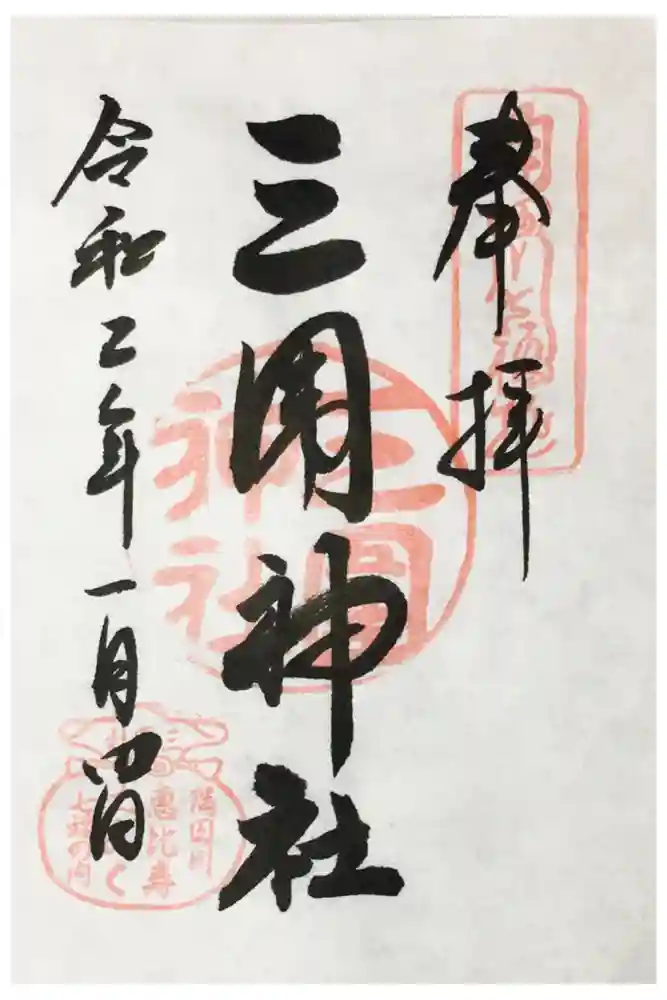 奉拝
三囲神社
令和二年一月四日
三圍
神社
隅田川
惠比寿
七福の内